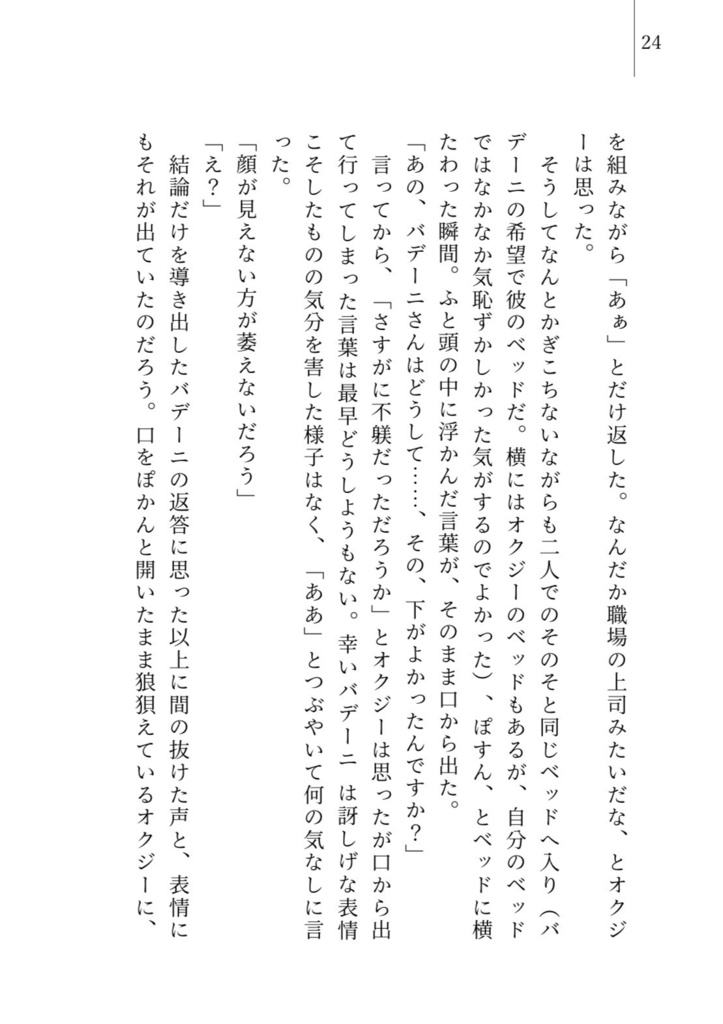 24
を組みながら「あぁ」とだけ返した。なんだか職場の上司みたいだな、とオクジ
ーは思った。
そうしてなんとかぎこちないながらも二人でのそのそと同じベッドへ入り（バ
デーニの希望で彼のベッドだ。横にはオクジーのベッドもあるが、自分のベッド
ではなかなか気恥ずかしかった気がするのでよかった）、ぽすん、とベッドに横
たわった瞬間。ふと頭の中に浮かんだ言葉が、そのまま口から出た。
「あの、バデーニさんはどうして……、その、下がよかったんですか？」
言ってから、「さすがに不躾だっただろうか」とオクジーは思ったが口から出
て行ってしまった言葉は最早どうしようもない。幸いバデーニ　は訝しげな表情
こそしたものの気分を害した様子はなく、「ああ」とつぶやいて何の気なしに言
った。
「顔が見えない方が萎えないだろう」
「え？」
結論だけを導き出したバデーニの返答に思った以上に間の抜けた声と、表情に
もそれが出ていたのだろう。口をぽかんと開いたまま狼狽えているオクジーに、